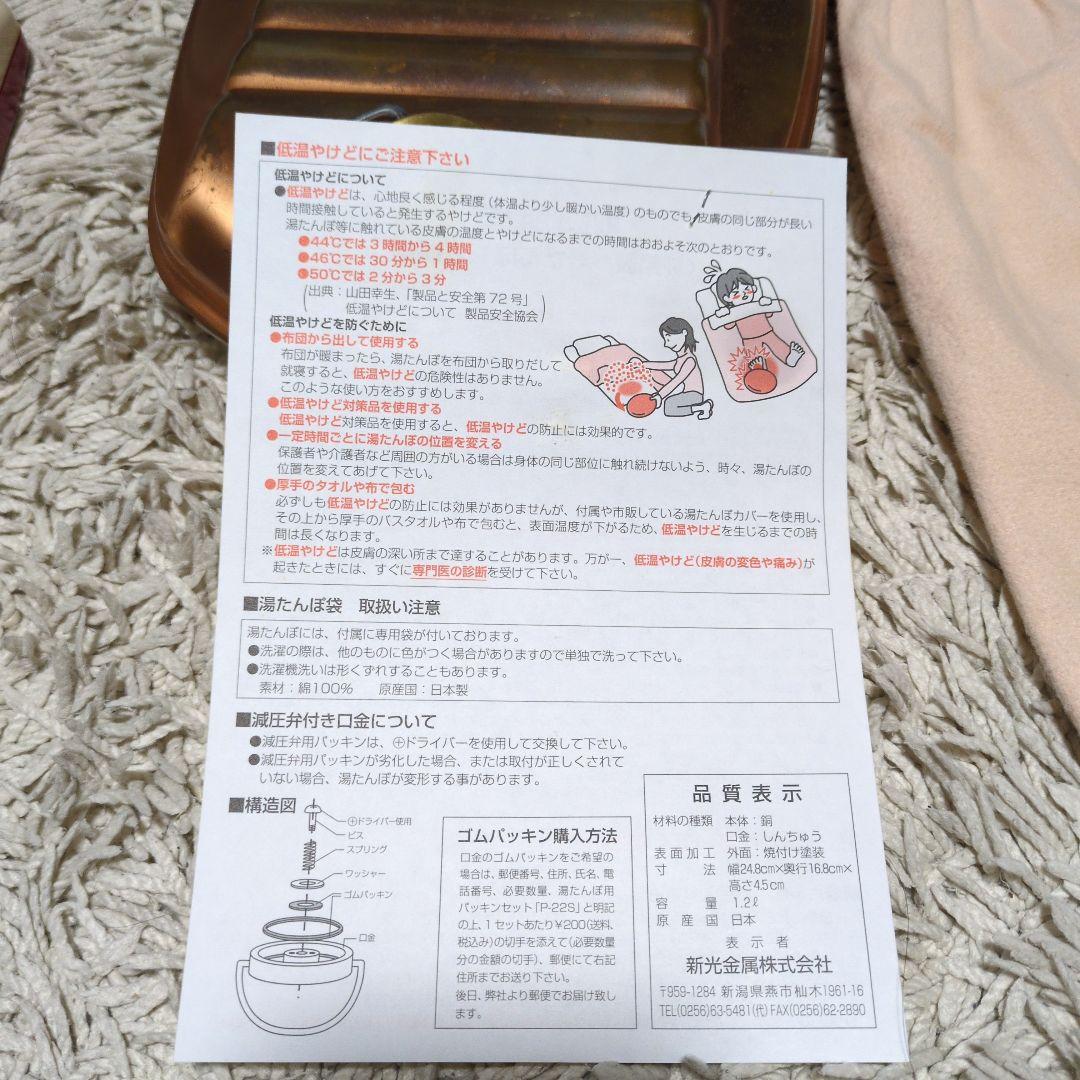 ■低温やけどにご注意下さい
低温やけどについて
●低温やけどは、心地良く感じる程度(体温より少し暖かい温度)のものでも、皮膚の同じ部分が長い
時間接触していると発生するやけどです。
湯たんぽ等に触れている皮膚の温度とやけどになるまでの時間はおおよそ次のとおりです。
●44℃では3時間から4時間
●46℃では30分から1時間
●50℃では2分から3分
(出典:山田幸生、「製品と安全第72号」
低温やけどについて 製品安全協会)
低温やけどを防ぐために
●布団から出して使用する
布団が暖まったら、湯たんぽを布団から取りだして
就寝すると、低温やけどの危険性はありません。
このような使い方をおすすめします。
●低温やけど対策品を使用する
低温やけど対策品を使用すると、低温やけどの防止には効果的です。
●一定時間ごとに湯たんぽの位置を変える
保護者や介護者など周囲の方がいる場合は身体の同じ部位に触れ続けないよう、時々、湯たんぽの
位置を変えてあげて下さい。
●厚手のタオルや布で包む
必ずしも低温やけどの防止には効果がありませんが、付属や市販している湯たんぽカバーを使用し、
その上から厚手のバスタオルや布で包むと、表面温度が下がるため、低温やけどを生じるまでの時
間は長くなります。
※低温やけどは皮膚の深い所まで達することがあります。万が一、低温やけど(皮膚の変色や痛み)が
起きたときには、すぐに専門医の診断を受けて下さい。
■湯たんぽ袋 取扱い注意
湯たんぽには、付属に専用袋が付いております。
●洗濯の際は、他のものに色がつく場合がありますので単独で洗って下さい。
●洗濯機洗いは形くずれすることもあります。
素材:綿100% 原産国:日本製
■減圧弁付き口金について
●減圧弁用パッキンは、⊕ドライバーを使用して交換して下さい。
●減圧弁用パッキンが劣化した場合、または取付が正しくされて
いない場合、湯たんぽが変形する事があります。
■構造図
⊕ドライバー使用
ビス
スプリング
ワッシャー
ゴムパッキン
口金
ゴムパッキン購入方法
口金のゴムパッキンをご希望の
場合は、郵便番号、住所、氏名、電
話番号、必要数量、湯たんぽ用
パッキンセット「P-22S」と明記
の上、1セットあたり¥200(送料、
税込み)の切手を添えて(必要数量
分の金額の切手)、郵便にて右記
住所までお送り下さい。
後日、弊社より郵便でお届け致し
ます。
品質表示
材料の種類 本体:銅
口金:しんちゅう
表面加工 外面:焼付け塗装
寸法 幅24.8cm×奥行16.8cm×
高さ4.5cm
容量 1.2ℓ
原産国 日本
表示者
新光金属株式会社
〒959-1284 新潟県燕市杣木1961-16
TEL(0256)63-5481(代) FAX(0256)62-2890